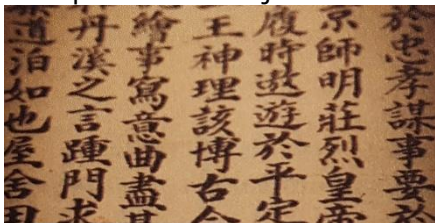 於忠孝謀事要
京師明莊烈皇帝
履時遨遊於平定
王神理該博古今
繪事寫意曲盡其
丹溪之言踵門求
道泊如也屋舍田